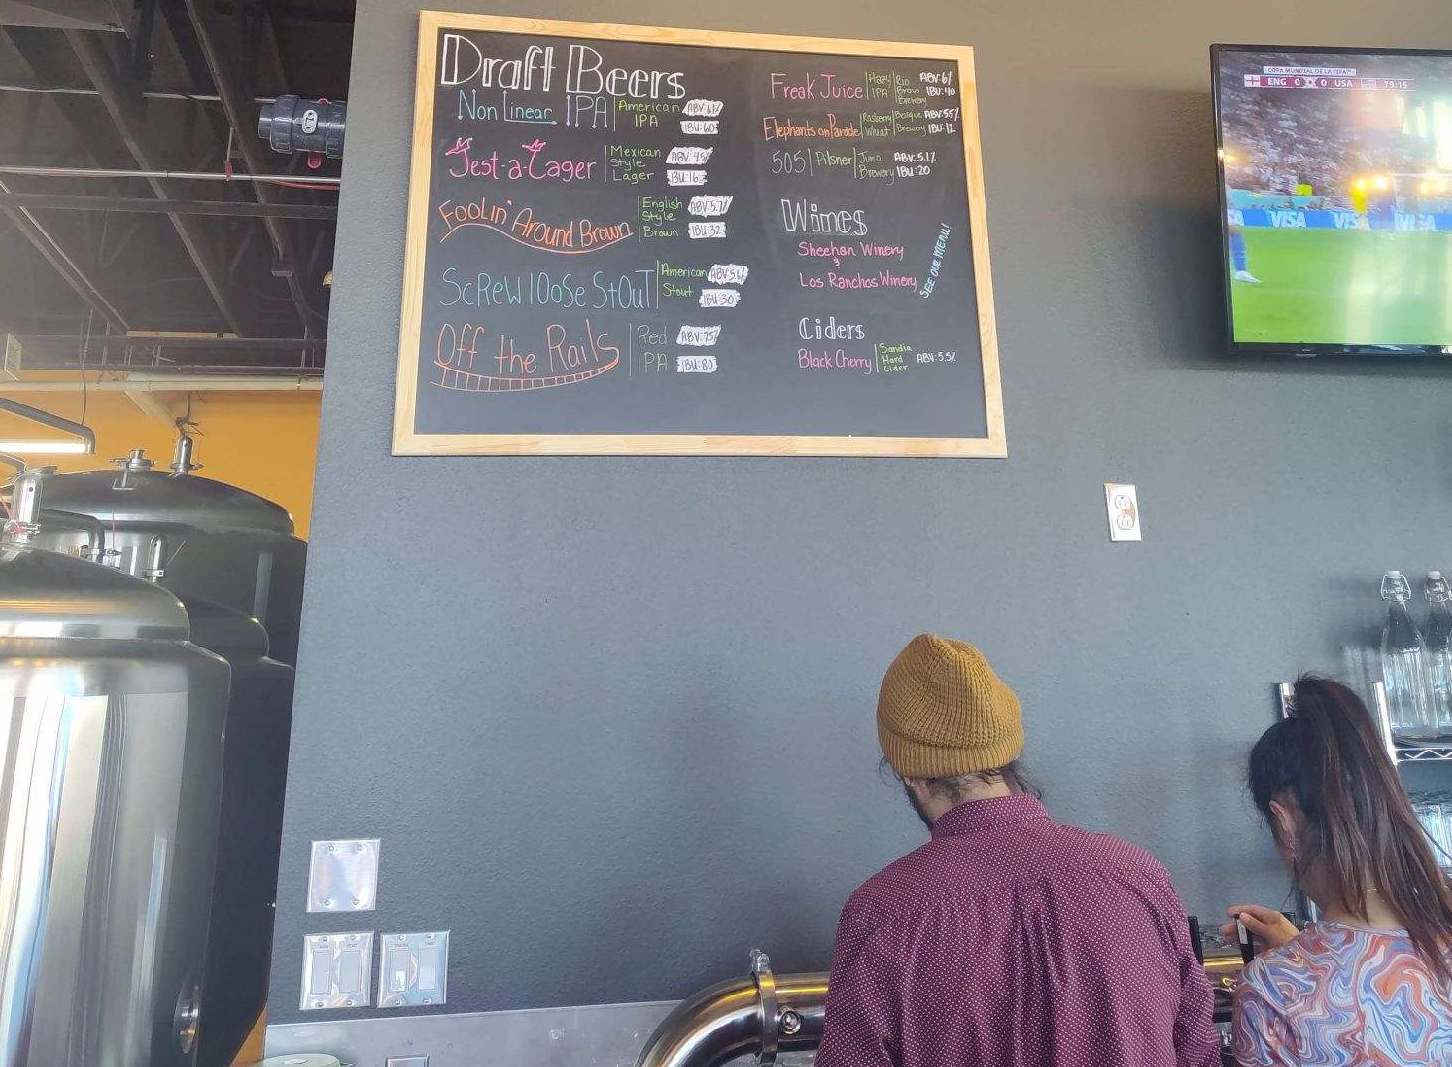 Draft Beers
Non Linear IPA American IPA ABV:6.1% IBU:60
Jest-a-Lager Mexican Style Lager IBU:16
Foolin' Around Brown English Style Brown ABV:5.7% IBU:32
Screw loose Stout American Stout ABV:5.6% IBU:30
Off the Rails Red IPA ABV:7.5% IBU:80
Freak Juice Hazy IPA Rio Bravo Brewery ABV:6% IBU:40
Elephants on Parade Raspberry Wheat Bosque Brewery ABV:5.5% IBU:12
505 Pilsner Brewery ABV:5.1% IBU:20
Wines
Sheehan Winery
&
Los Ranchos Winery
SEE OUR MENU!
Ciders
Black Cherry Sandia Hard Cider ABV:5.5%
COPA MUNDIAL DE LA FIFA
ENG 0 0 USA 79:15
VISA VISA